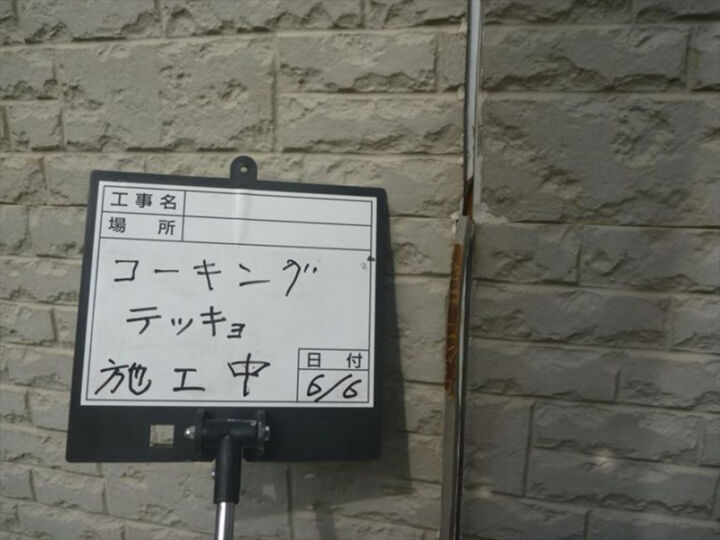 工事名
場所
コーキング
テッキョ
施工中
日付
6/6